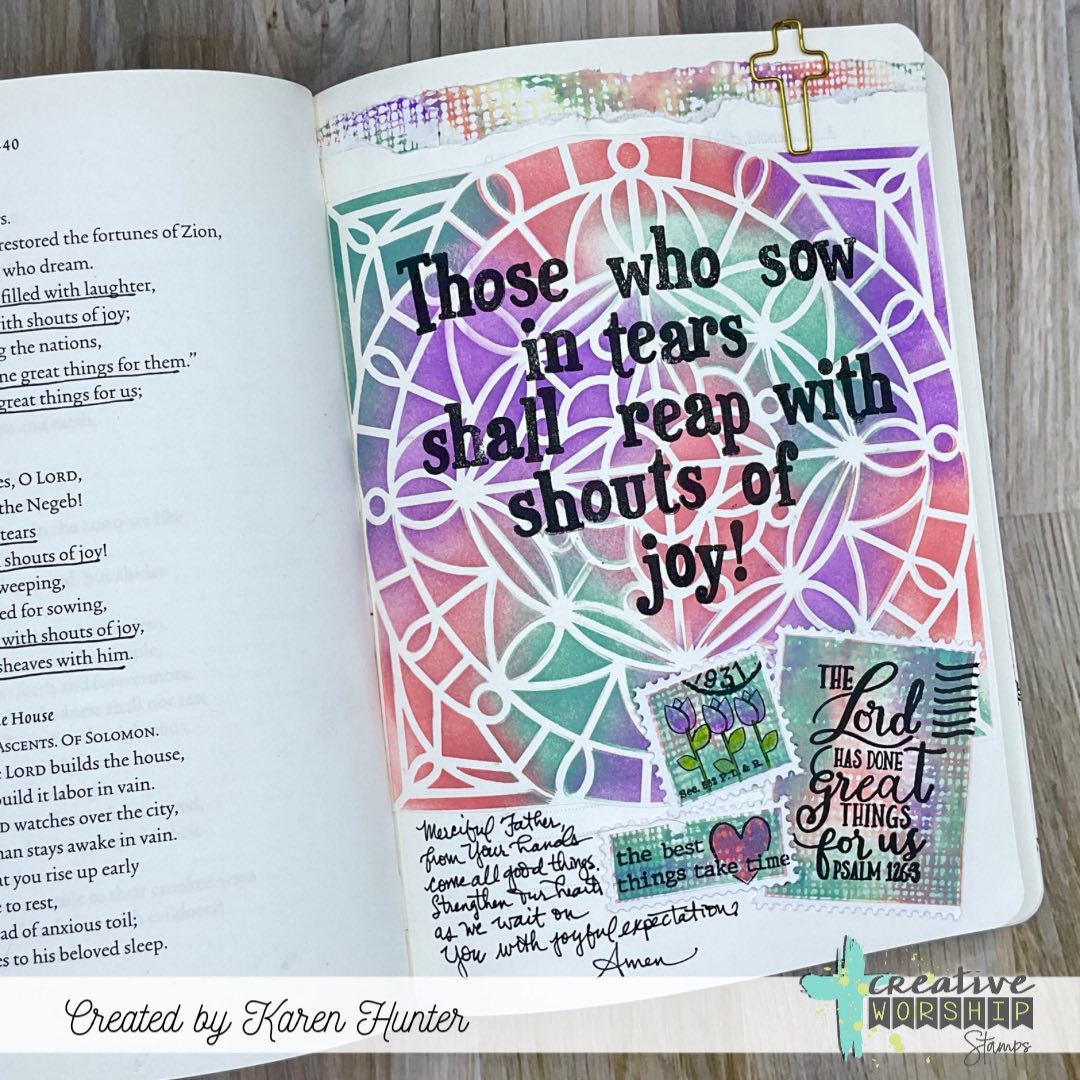 -40
restored the fortunes of Zion,
who dream.
filled with laughter,
ith shouts of joy;
g the nations,
ne great things for them.”
great things for us;
es, O LORD,
the Negeb!
tears
shouts of joy!
weeping,
ed for sowing,
with shouts of joy,
sheaves with him.
e House
ASCENTS. OF SOLOMON.
LORD builds the house,
build it labor in vain.
D watches over the city,
man stays awake in vain.
at you rise up early
e to rest,
ad of anxious toil;
es to his beloved sleep.
Those who sow
in tears
shall reap with
shouts of
joy!
1931
Sec. 562 P. L. & R.
THE
Lord
HAS DONE
great
THINGS
for us
PSALM 126:3
the best
things take time
Merciful Father,
from Your hands
come all good things.
Strengthen our hearts
as we wait on
You with joyful expectation.
Amen
Created by Karen Hunter
creative
WORSHIP
Stamps